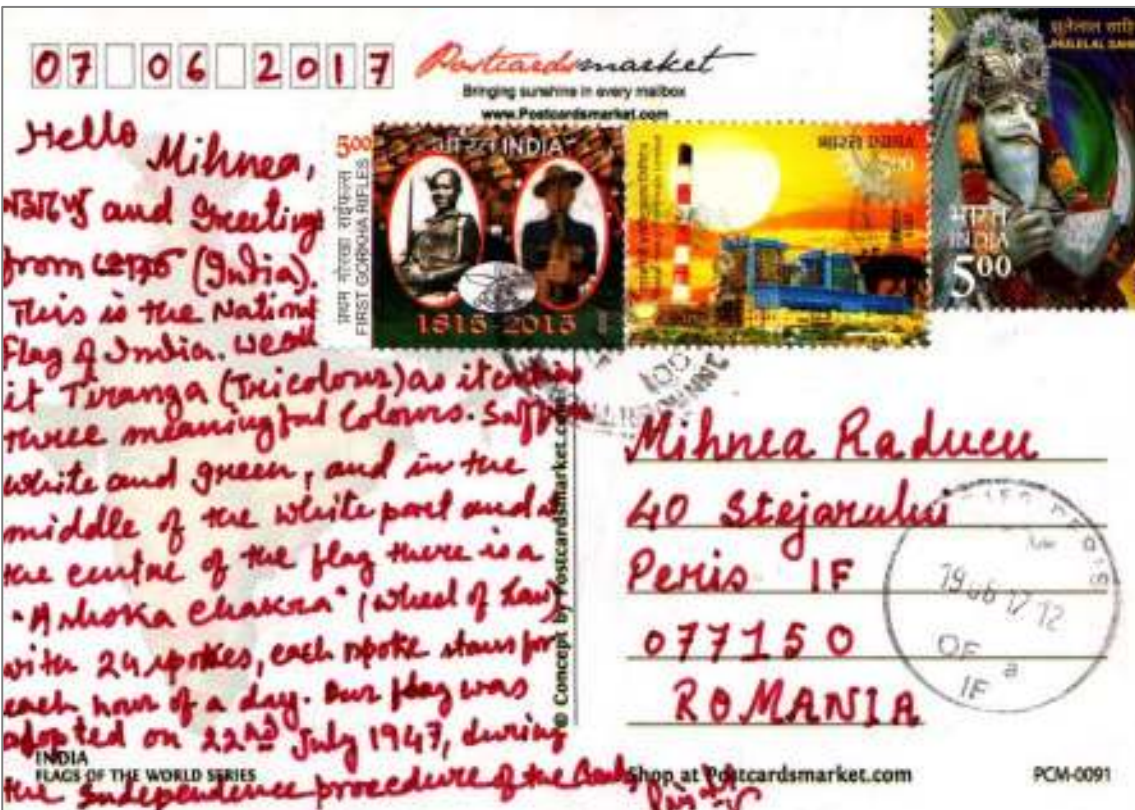 07 06 2017
Postcardsmarket
Bringing sunshine in every mailbox
www.Postcardsmarket.com
झुलेलाल साहि
JHULELAL SAHIB
भारत
INDIA
5.00
भारत INDIA
5.00
प्रथम गोरखा राईफल्स
FIRST GORKHA RIFLES
1815-2015
भारत INDIA
Hello
Mihnea,
and Greetings
from (India).
This is the National
Flag of India. We call
it Tiranga (Tricolour) as it
three meaningful Colours. Saffron
white and green, and in the
middle of the white part and
the centre of the flag there is a
"Ashoka Chakra" (wheel of Law)
with 24 spokes, each spoke stans for
each hour of a day. Our flag was
adopted on 22nd July 1947, during
the Independence procedure of the
© Concept by Postcardsmarket.com
Mihnea Raducu
40 Stejarului
Peris IF
077150
ROMANIA
19 06 17 12
OF
IF
INDIA
FLAGS OF THE WORLD SERIES
Shop at Postcardsmarket.com
PCM-0091